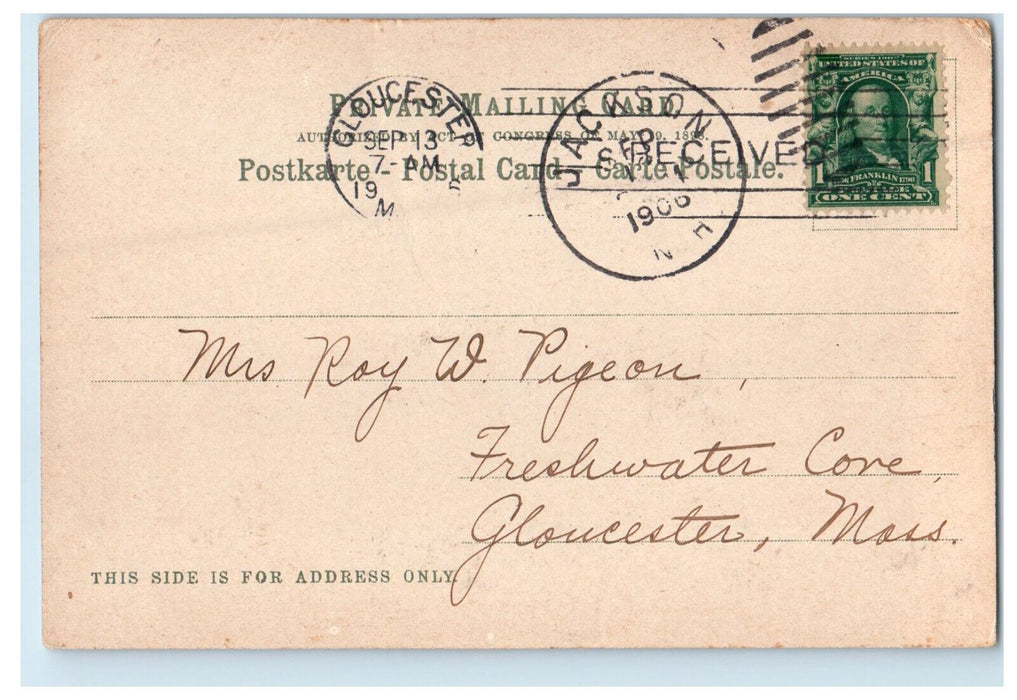 PRIVATE MAILING CARD
AUTHORIZED BY ACT OF CONGRESS OF MAY 19. 1898.
Postkarte - Postal Card - Carte Postale.
GLOUCESTER
SEP 13
7-AM
19
M
JACKSON
1906
N H
RECEIVED
SERIES 1902
UNITED STATES OF
AMERICA
FRANKLIN 1790
1 1
ONE CENT
Mrs Roy W. Pigeon,
Freshwater Cove,
Gloucester, Mass.
THIS SIDE IS FOR ADDRESS ONLY.